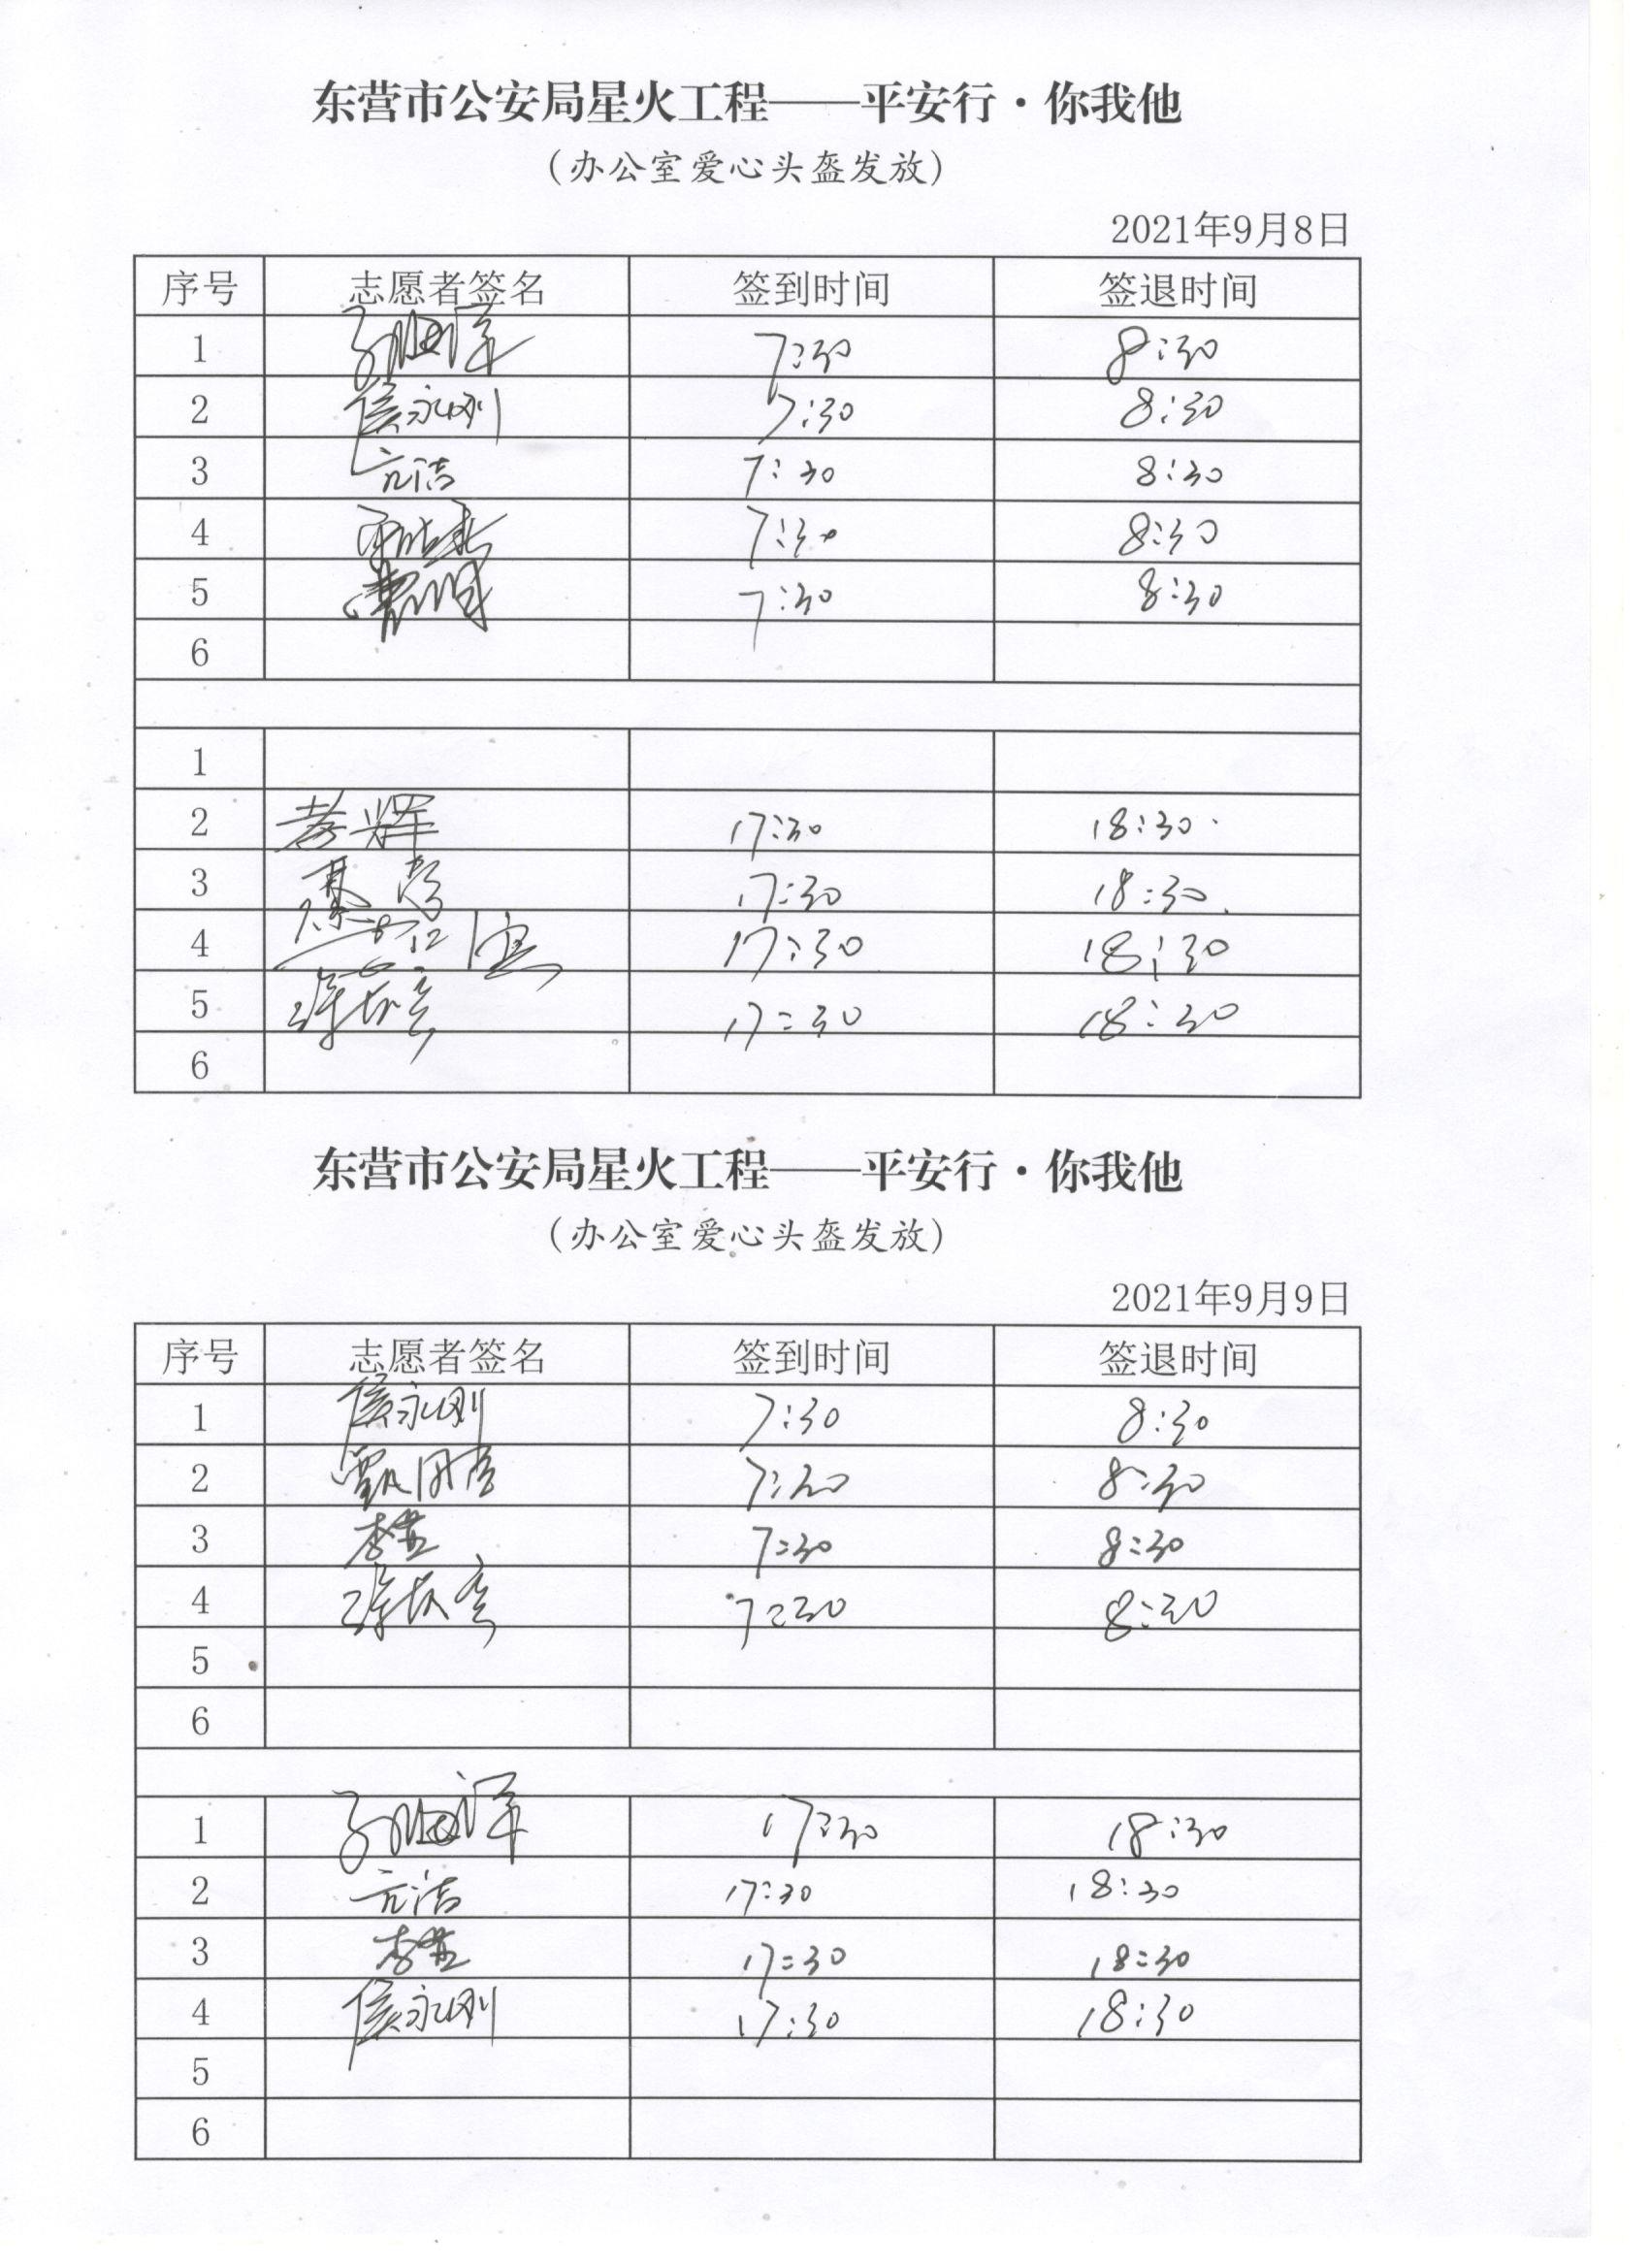 东营市公安局星火工程——平安行·你我他
（办公室爱心头盔发放）
2021年9月8日
序号 志愿者签名 签到时间 签退时间
1 7:30 8:30
2 侯永刚 7:30 8:30
3 亓洁 7:30 8:30
4 7:30 8:30
5 7:30 8:30
6
1
2 李辉 17:30 18:30
3 綦彦 17:30 18:30
4 17:30 18:30
5 17:30 18:30
6
东营市公安局星火工程——平安行·你我他
（办公室爱心头盔发放）
2021年9月9日
序号 志愿者签名 签到时间 签退时间
1 侯永刚 7:30 8:30
2 7:30 8:30
3 7:30 8:30
4 7:30 8:30
5
6
1 17:30 18:30
2 亓洁 17:30 18:30
3 17:30 18:30
4 侯永刚 17:30 18:30
5
6